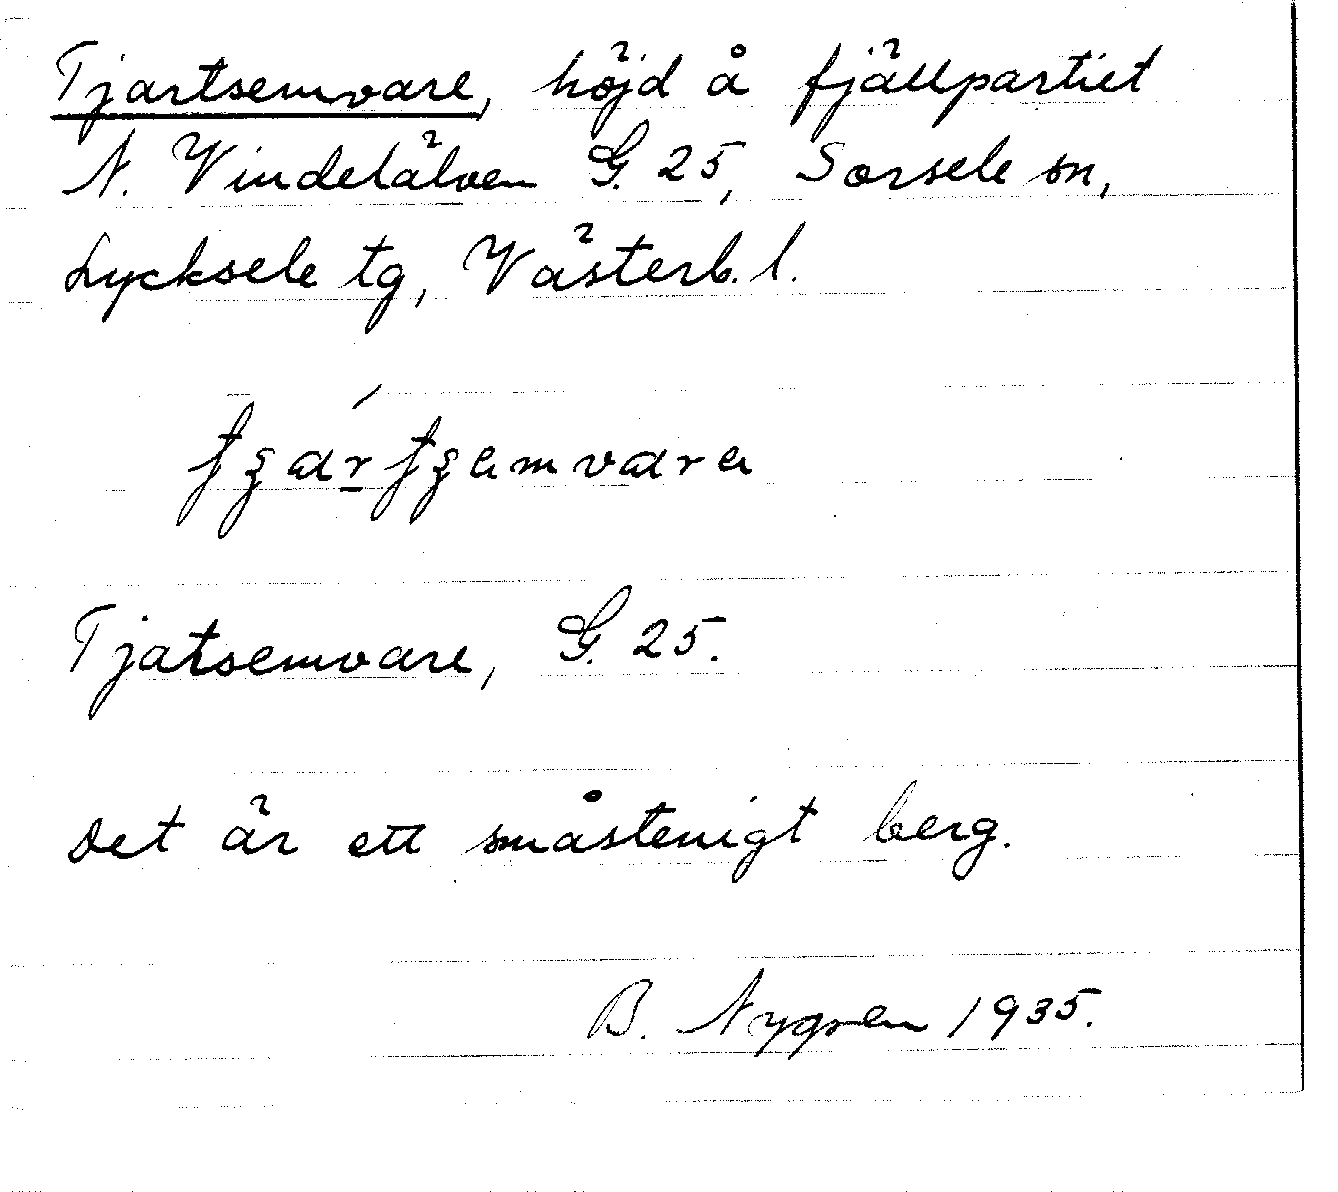 Tjartsemvare, höjd å fjällpartiet
N. Vindelälven G. 25, Sorsele sn,
Lycksele tg, Västerb. l.
Tjatsemvare, G. 25.
Det är ett småstenigt berg.
B. Nygren 1935.